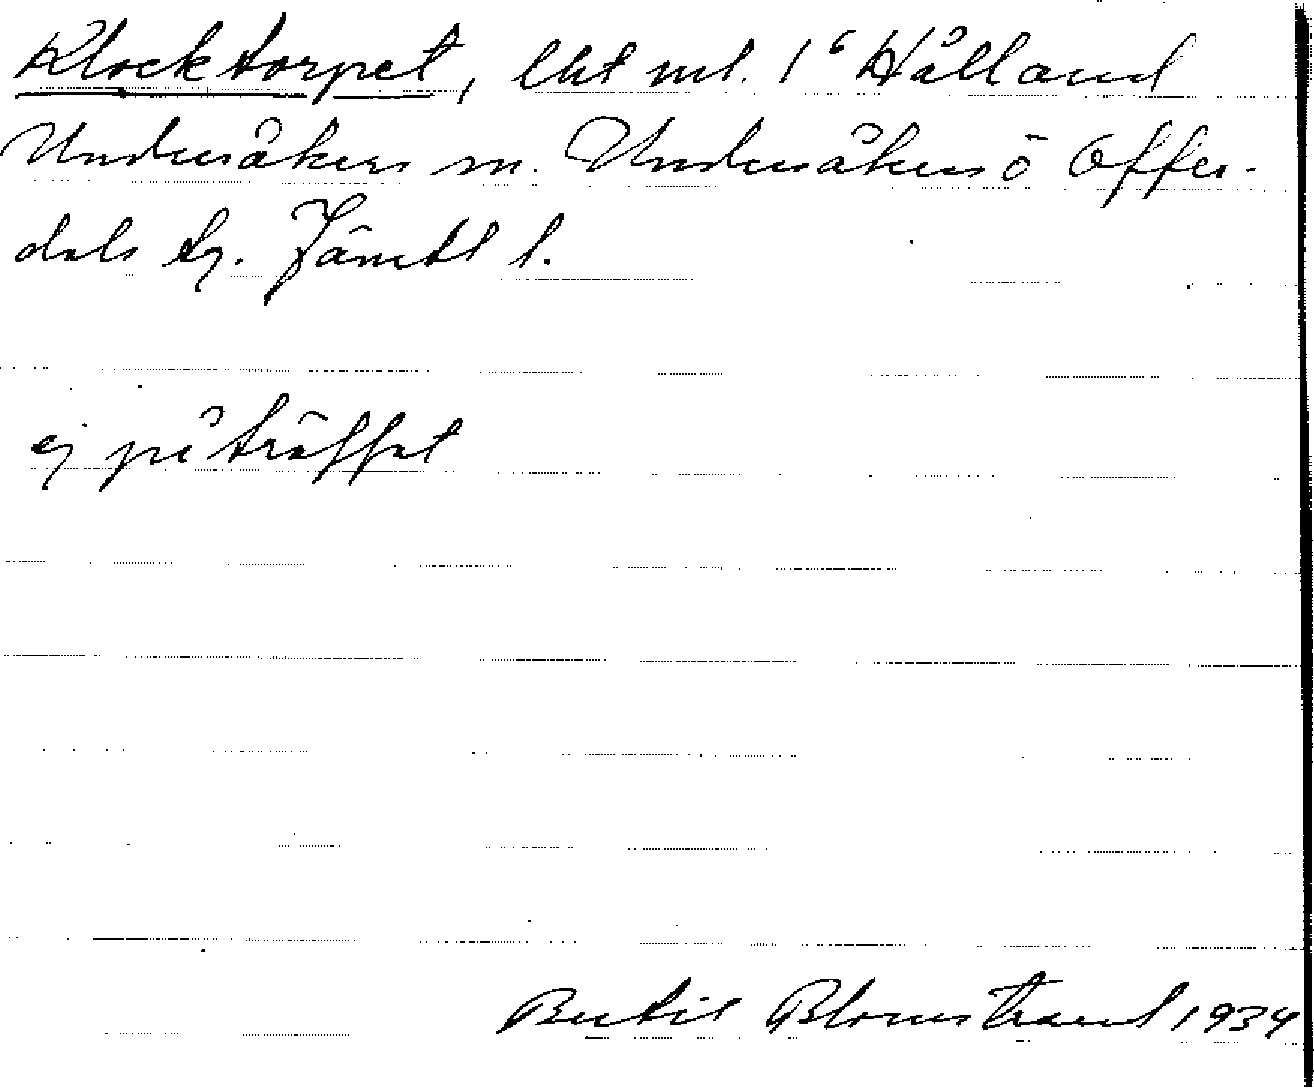 Klocktorpet, lht nr. 1⁶ Hålland
Undersåkers sn. Undersåkers o Offer-
dals tg. Jämtl l.
ej påträffat
Bertil Blomstrand 1934